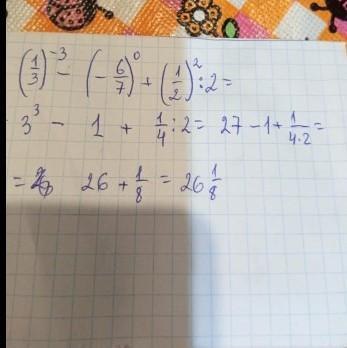 (1/3)^-3 - (-6/7)^0 + (1/2)^2 : 2 =
3^3 - 1 + 1/4 : 2 = 27 - 1 + 1/4·2 =
= 26 + 1/8 = 26 1/8